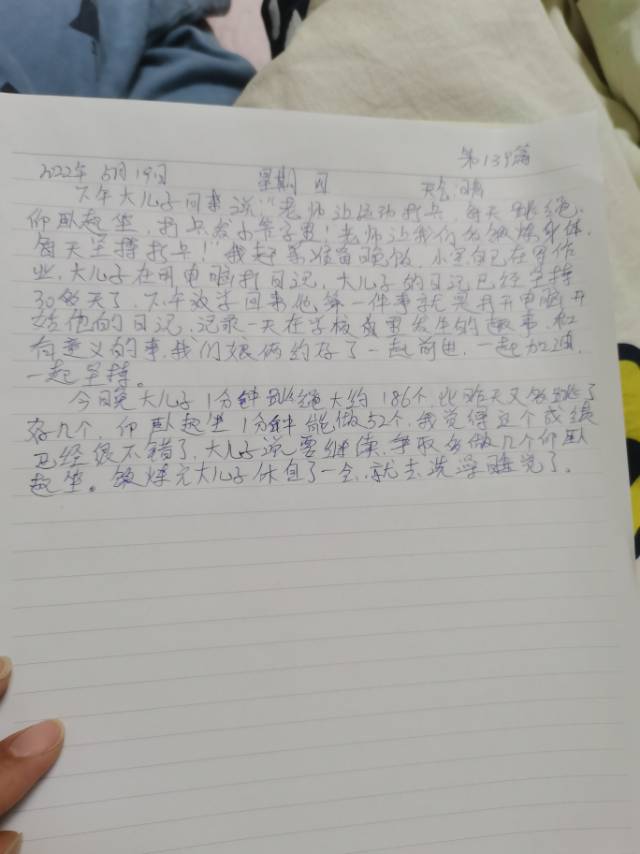 第139篇
2022年5月19日 星期四 天气:晴
下午大儿子回来说:"老师让运动打卡,每天跳绳,
仰卧起坐,打卡发小
每天坚持打卡!"我赶紧准备晚饭,小宝自己在写作
业,大儿子在用电脑打日记,大儿子的日记已经坚持
30多天了,下午放学回来他第一件事就是打开电脑开
始他的日记,记录一天在学校或里发生的趣事,和
有意义的事,我们娘俩约好了一起前进,一起加油,
一起坚持。
今晚大儿子1分钟跳绳大约186个,比昨天又多跳了
好几个,仰卧起坐1分钟能做52个,我觉得这个成绩
已经很不错了,大儿子说要继续,争取多做几个仰卧
起坐。锻炼完大儿子休息了一会,就去洗澡睡觉了。